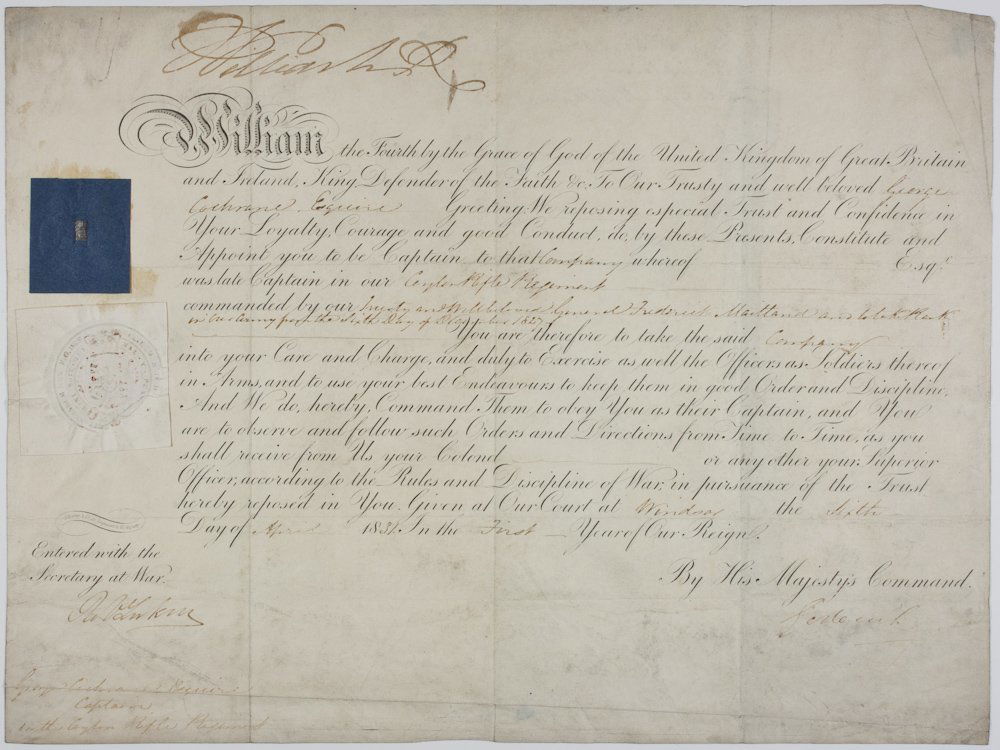 William R
William the Fourth by the Grace of God of the United Kingdom of Great Britain
and Ireland, King, Defender of the Faith &c. To Our Trusty and well beloved George
Cochrane Esquire Greeting: We reposing especial Trust and Confidence in
Your Loyalty, Courage and good Conduct, do, by these Presents, Constitute and
Appoint you to be Captain to that Company whereof Esqr.
was late Captain in our Ceylon Rifle Regiment
commanded by our Trusty and Wellbeloved General Frederick Maitland and to take Rank
in Our Army from the Sixth Day of 1827
You are therefore to take the said Company
into your Care and Charge, and duly to Exercise as well the Officers as Soldiers thereof
in Arms, and to use your best Endeavours to keep them in good Order and Discipline,
And We do, hereby, Command Them to obey You as their Captain, and You
are to observe and follow such Orders and Directions from Time to Time, as you
shall receive from Us, your Colonel or any other your Superior
Officer, according to the Rules and Discipline of War, in pursuance of the Trust
hereby reposed in You. Given at Our Court at Windsor the Sixth
Day of April 1831. In the First Year of Our Reign.
Entered with the
Secretary at War.
By His Majesty's Command.
Goderich
George Cochrane Esquire
Captain
in the Ceylon Rifle Regiment